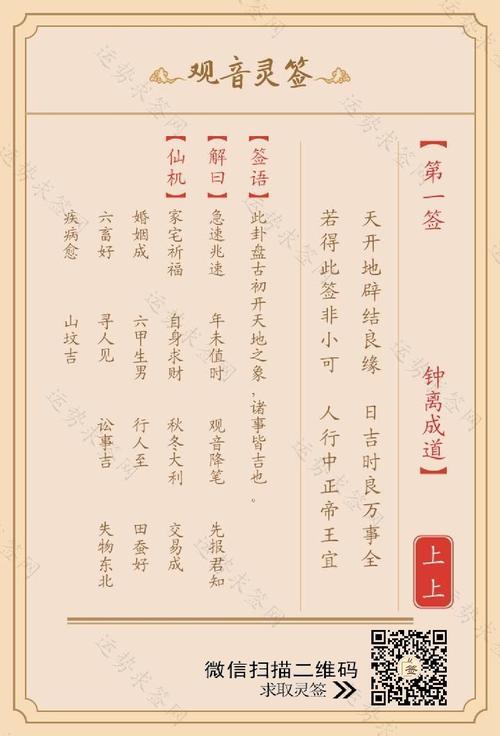 观音灵签
【第一签 钟离成道】
上上
天开地辟结良缘 日吉时良万事全
若得此签非小可 人行中正帝王宜
【签语】此卦盘古初开天地之象，诸事皆吉也。
【解曰】急速兆速 年未值时 观音降笔 先报君知
【仙机】家宅祈福 自身求财 秋冬大利 交易成
婚姻成 六甲生男 行人至 田蚕好
六畜好 寻人见 讼事吉 失物东北
疾病愈 山坟吉
微信扫描二维码
求取灵签
签
运势求签网